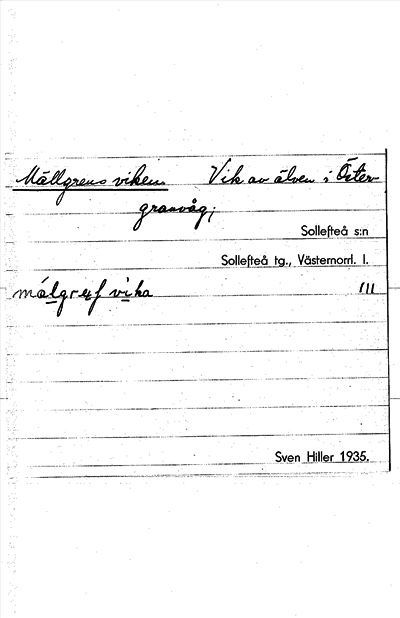 Mällgrens viken Vik av älven i Öster-
granvåg;
Sollefteå s:n
Sollefteå tg., Västernorrl. l.
vika III
Sven Hiller 1935.